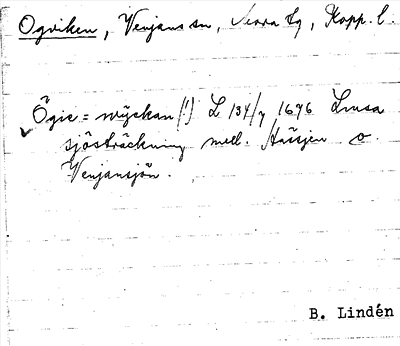 Ogviken, Venjans sn, Mora tg, Kopp. l.
Ögie = wyckan (!) L 134/7 1696 Lmsa
sjösträckning mell. Hässjen o.
Venjansjön.
B. Lindén